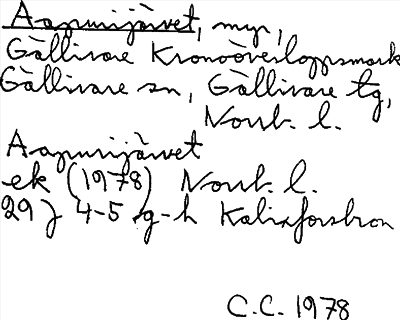 Aapunijärvet, myr,
Gällivare Kronoöverloppsmark
Gällivare sn, Gällivare tg,
Norrb. l.
Aapunijärvet
ek (1978) Norrb. l.
29J 4-5 g-h Kalixforsbron
C.C. 1978